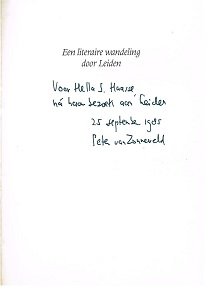 Een literaire wandeling
door Leiden
Voor Hella S. Haasse
ná haar bezoek aan Leiden
25 september 1985
Peter van Zonneveld